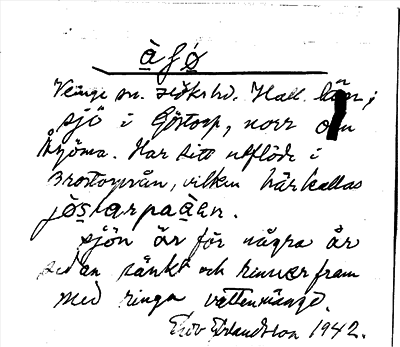 àfø
Veinge sn. Hökshd. Hall. län;
sjö i Göstorp, norr om
Kyöma. Har sitt utflöde i
Brostorpsån, vilken här kallas
jøstarpaàan.
sjön är för några år
sedan sänkt och rinner fram
med ringa vattenmängd.
Erlandsson 1942.